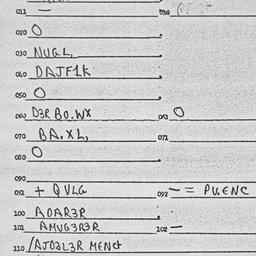 011 —
020 O
030 NUGL,
040 DAJF1K
050 O
060 D3R BO.WX 061 O
070 BA.XL, 071
080 O
090
091 + QVLG 092 — = PU.ENC
100 AOAR3R
101 AMUG3R3R 102 —
110 /AJO3L3R MENd